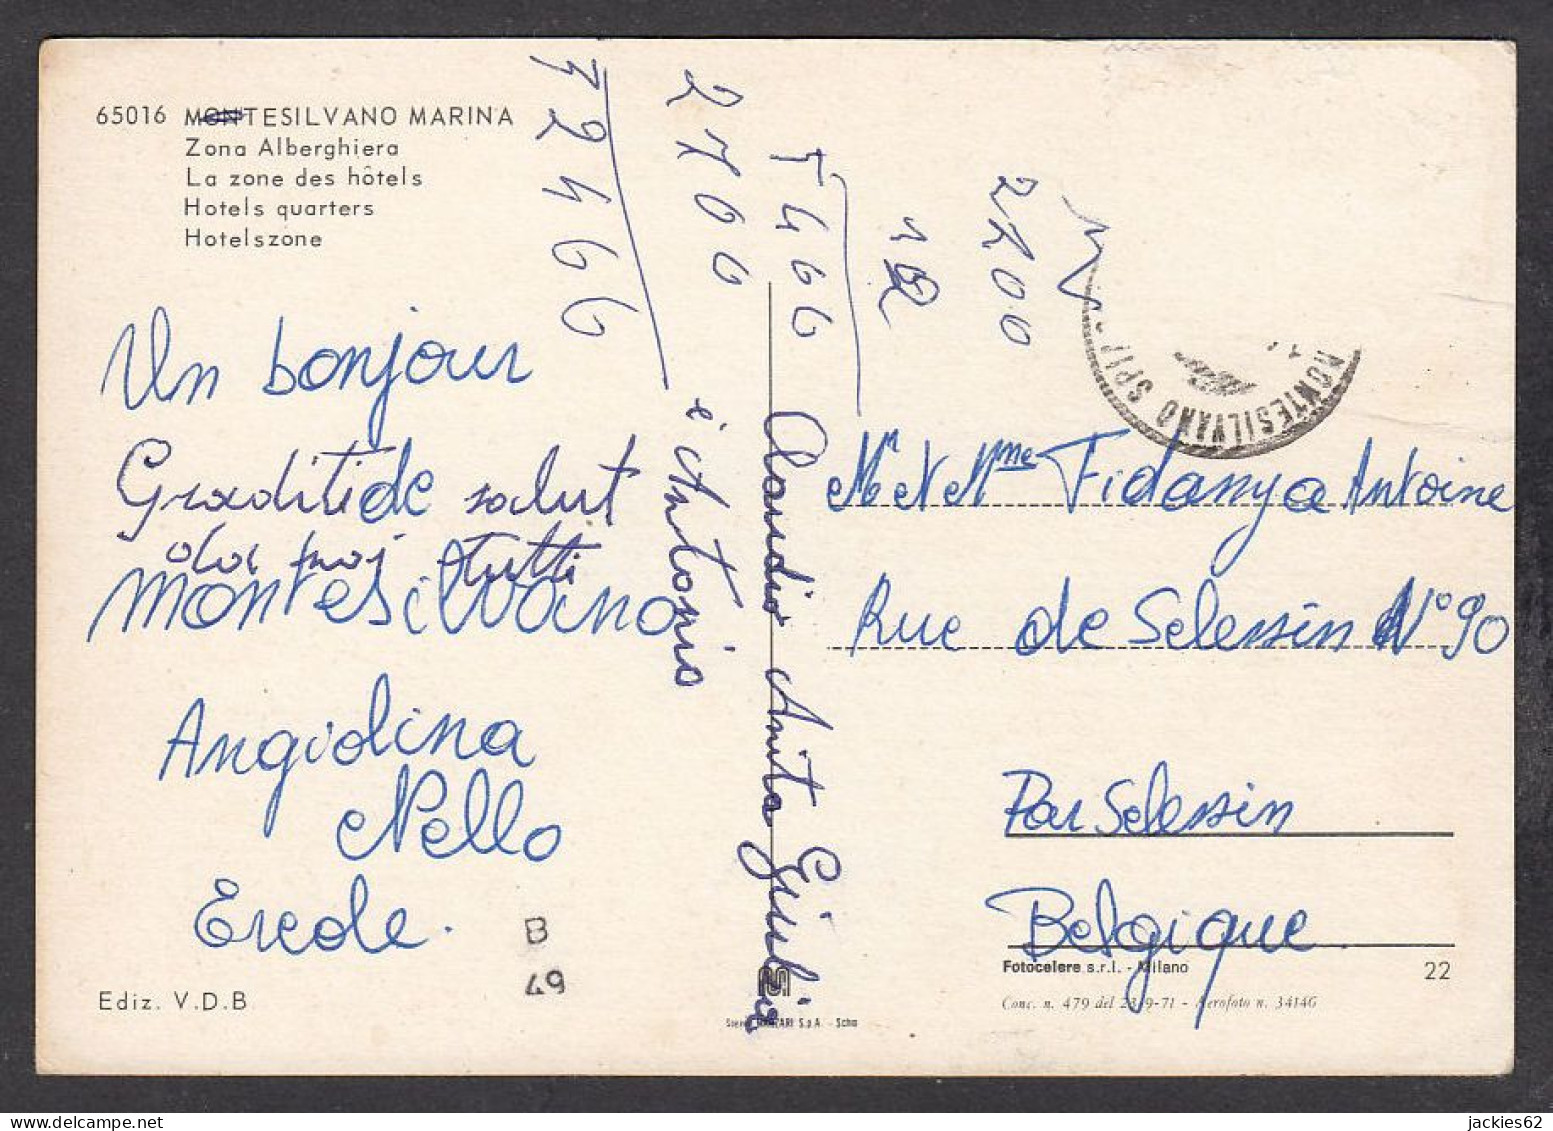 65016 MONTESILVANO MARINA
Zona Alberghiera
La zone des hôtels
Hotels quarters
Hotelszone
72466
2700
T 466
12
2700
MONTESILVANO SPI
Un bonjour
Graditide salut
da noi tutti
Montesilvano
Angiolina
Nello
Ercole.
e Antonio
Claudio Anita Giulia
Mr et Mme Fidanya Antoine
Rue de Selessin N° 90
Par Selessin
Belgique
B
49
Ediz. V.D.B
Fotocelere s.r.l. - Milano
22
Conc. n. 479 del 23-9-71 - Aerofoto n. 34146
S.p.A. - Schio
jackies62